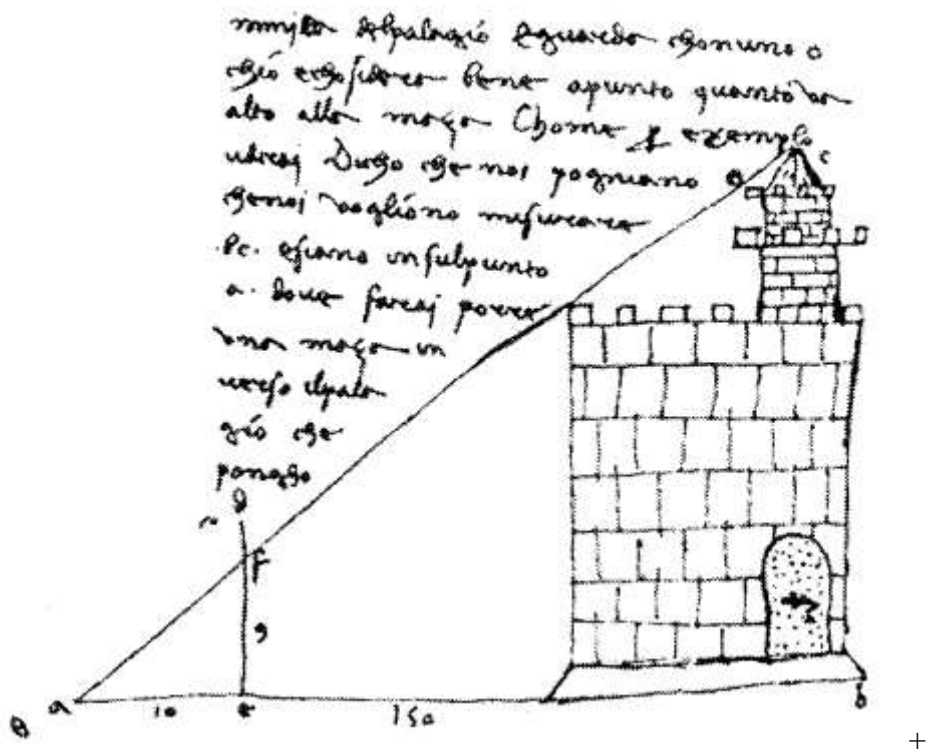 del palagio e guarda chon uno o
chio e chosidera bene apunto quanto va
alto alla maza Chome p exemplo
Dicho che noi pogniano
che noi vogliono misurare
.bc. e siano in sul punto
a. dove farai porre
una maza in
verso il pala
gio che
pongho
c
d
f
9
a
10
e
150
b